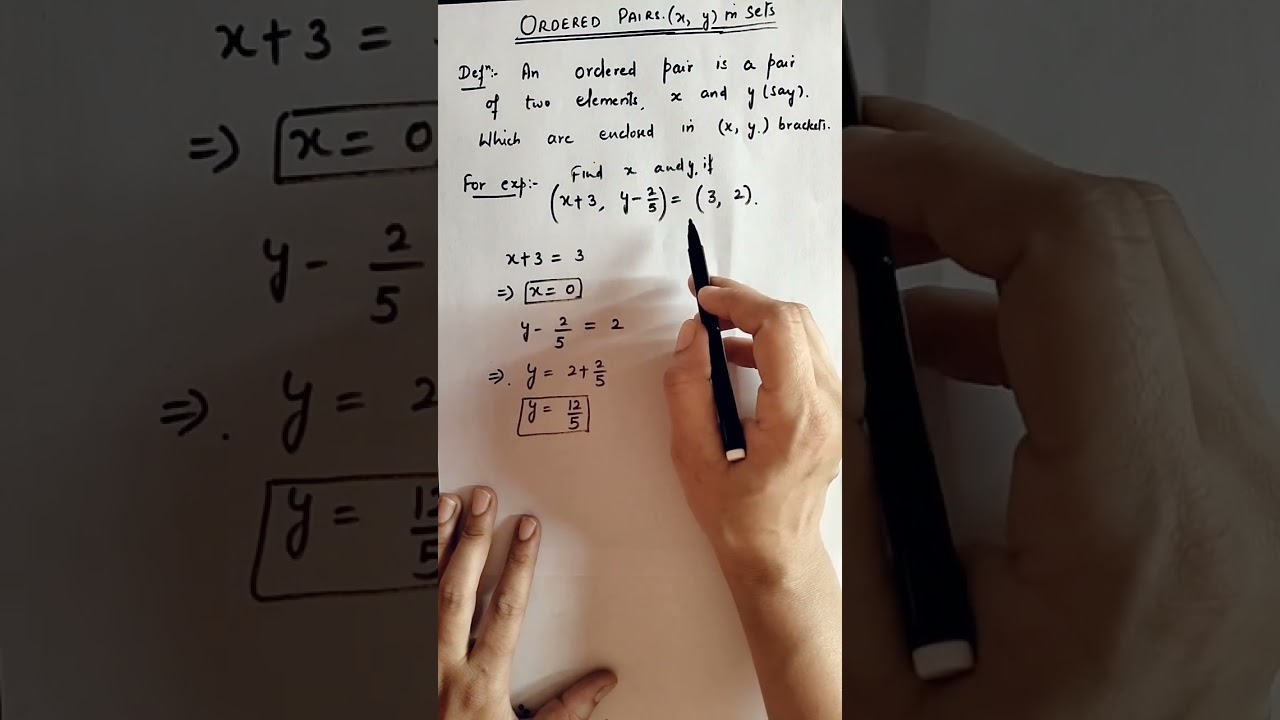 ORDERED PAIRS. (x, y) in sets
Defⁿ:- An ordered pair is a pair
of two elements, x and y (say).
Which are enclosed in (x, y.) brackets.
For exp:- Find x and y, if
(x+3, y-2/5) = (3, 2).
x+3 = 3
⇒) x = 0
y - 2/5 = 2
⇒. y = 2+2/5
y = 12/5
x+3 =
⇒) x = 0
y - 2/5
⇒. y = 2
y = 12/5